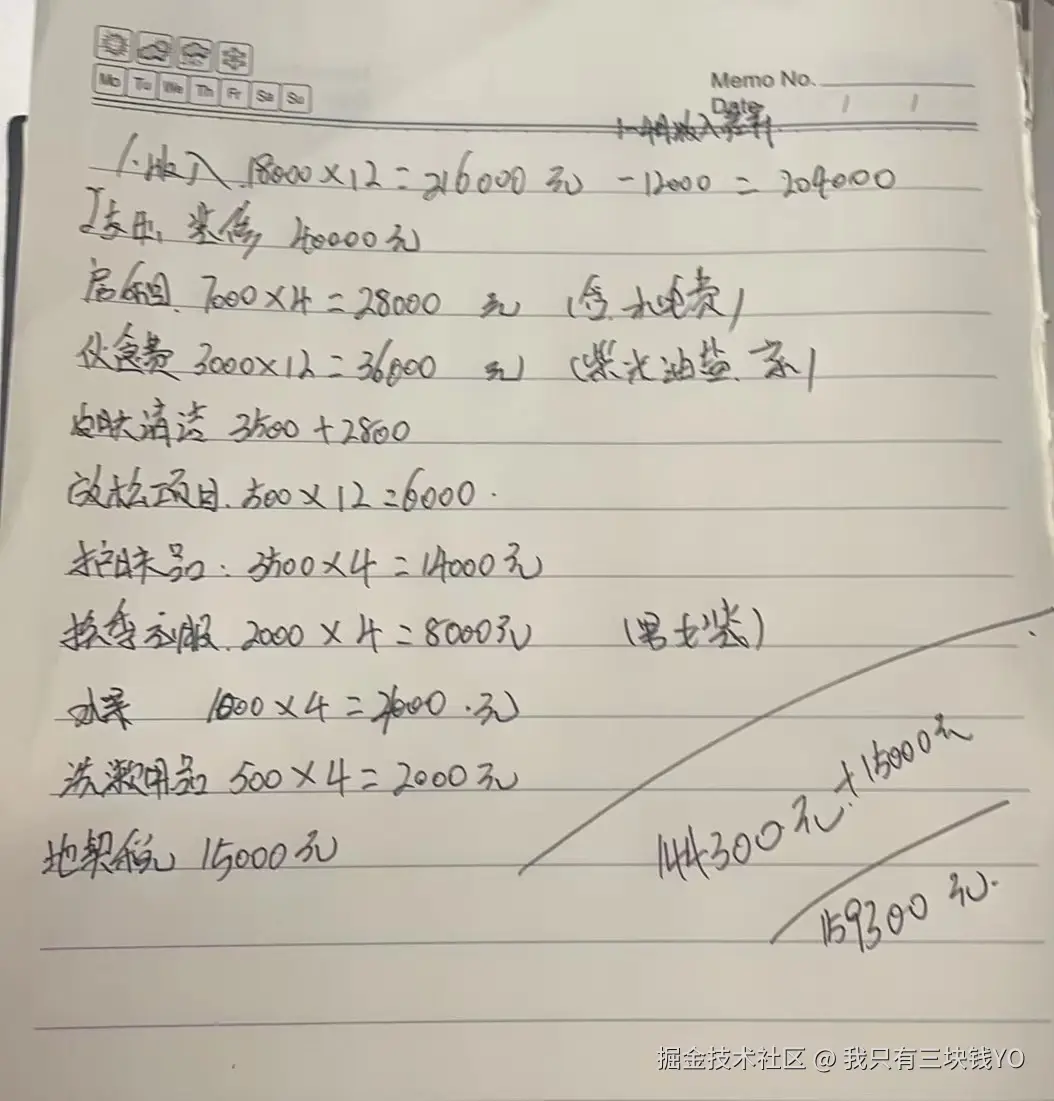 Mo Tu We Th Fr Sa Su
Memo No.
Date / /
1-4月收入
1.收入 18000×12=216000元 -12000=204000
支出, 装修, 40000元
房租. 7000×4=28000 元 (含水电费)
伙食费 3000×12=36000 元 (柴米油盐.
皮肤清洁 3500+2800
放松项目. 500×12=6000.
护肤品: 3500×4=14000元
换季衣服. 2000×4=8000元 (男女装)
水果 ×4= .元
洗漱用品 500×4=2000元
地契税 15000元
144300元+15000元
159300元.
掘金技术社区 @ 我只有三块钱YO